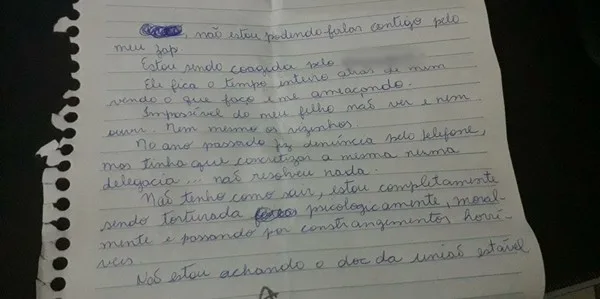 , não estou podendo falar contigo pelo
meu zap
Estou sendo coagida pelo
Ele fica o tempo inteiro atrás de mim
vendo o que faço e me ameaçando.
Impossível do meu filho não ver e nem
ouvir. Nem mesmo os vizinhos.
No ano passado fiz denúncia pelo telefone,
mas tinha que concretizar a mesma numa
delegacia... não resolveu nada.
Não tenho como sair, estou completamente
sendo torturada psicologicamente, moral-
mente e passando por constrangimentos horrí-
veis.
Não estou achando o doc da união estável